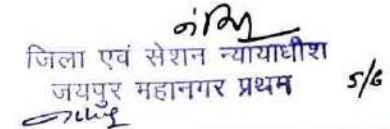 जिला एवं सेशन न्यायाधीश
जयपुर महानगर प्रथम
5/6